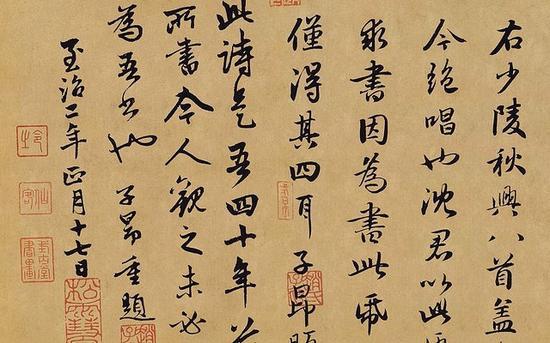 右少陵秋興八首蓋
今絕唱也沈君以此
求書因為書此帋
僅得其四耳 子昂題
此詩是吾四十年前
所書今人觀之未必
為吾書也 子昂重題
至治二年正月十七日